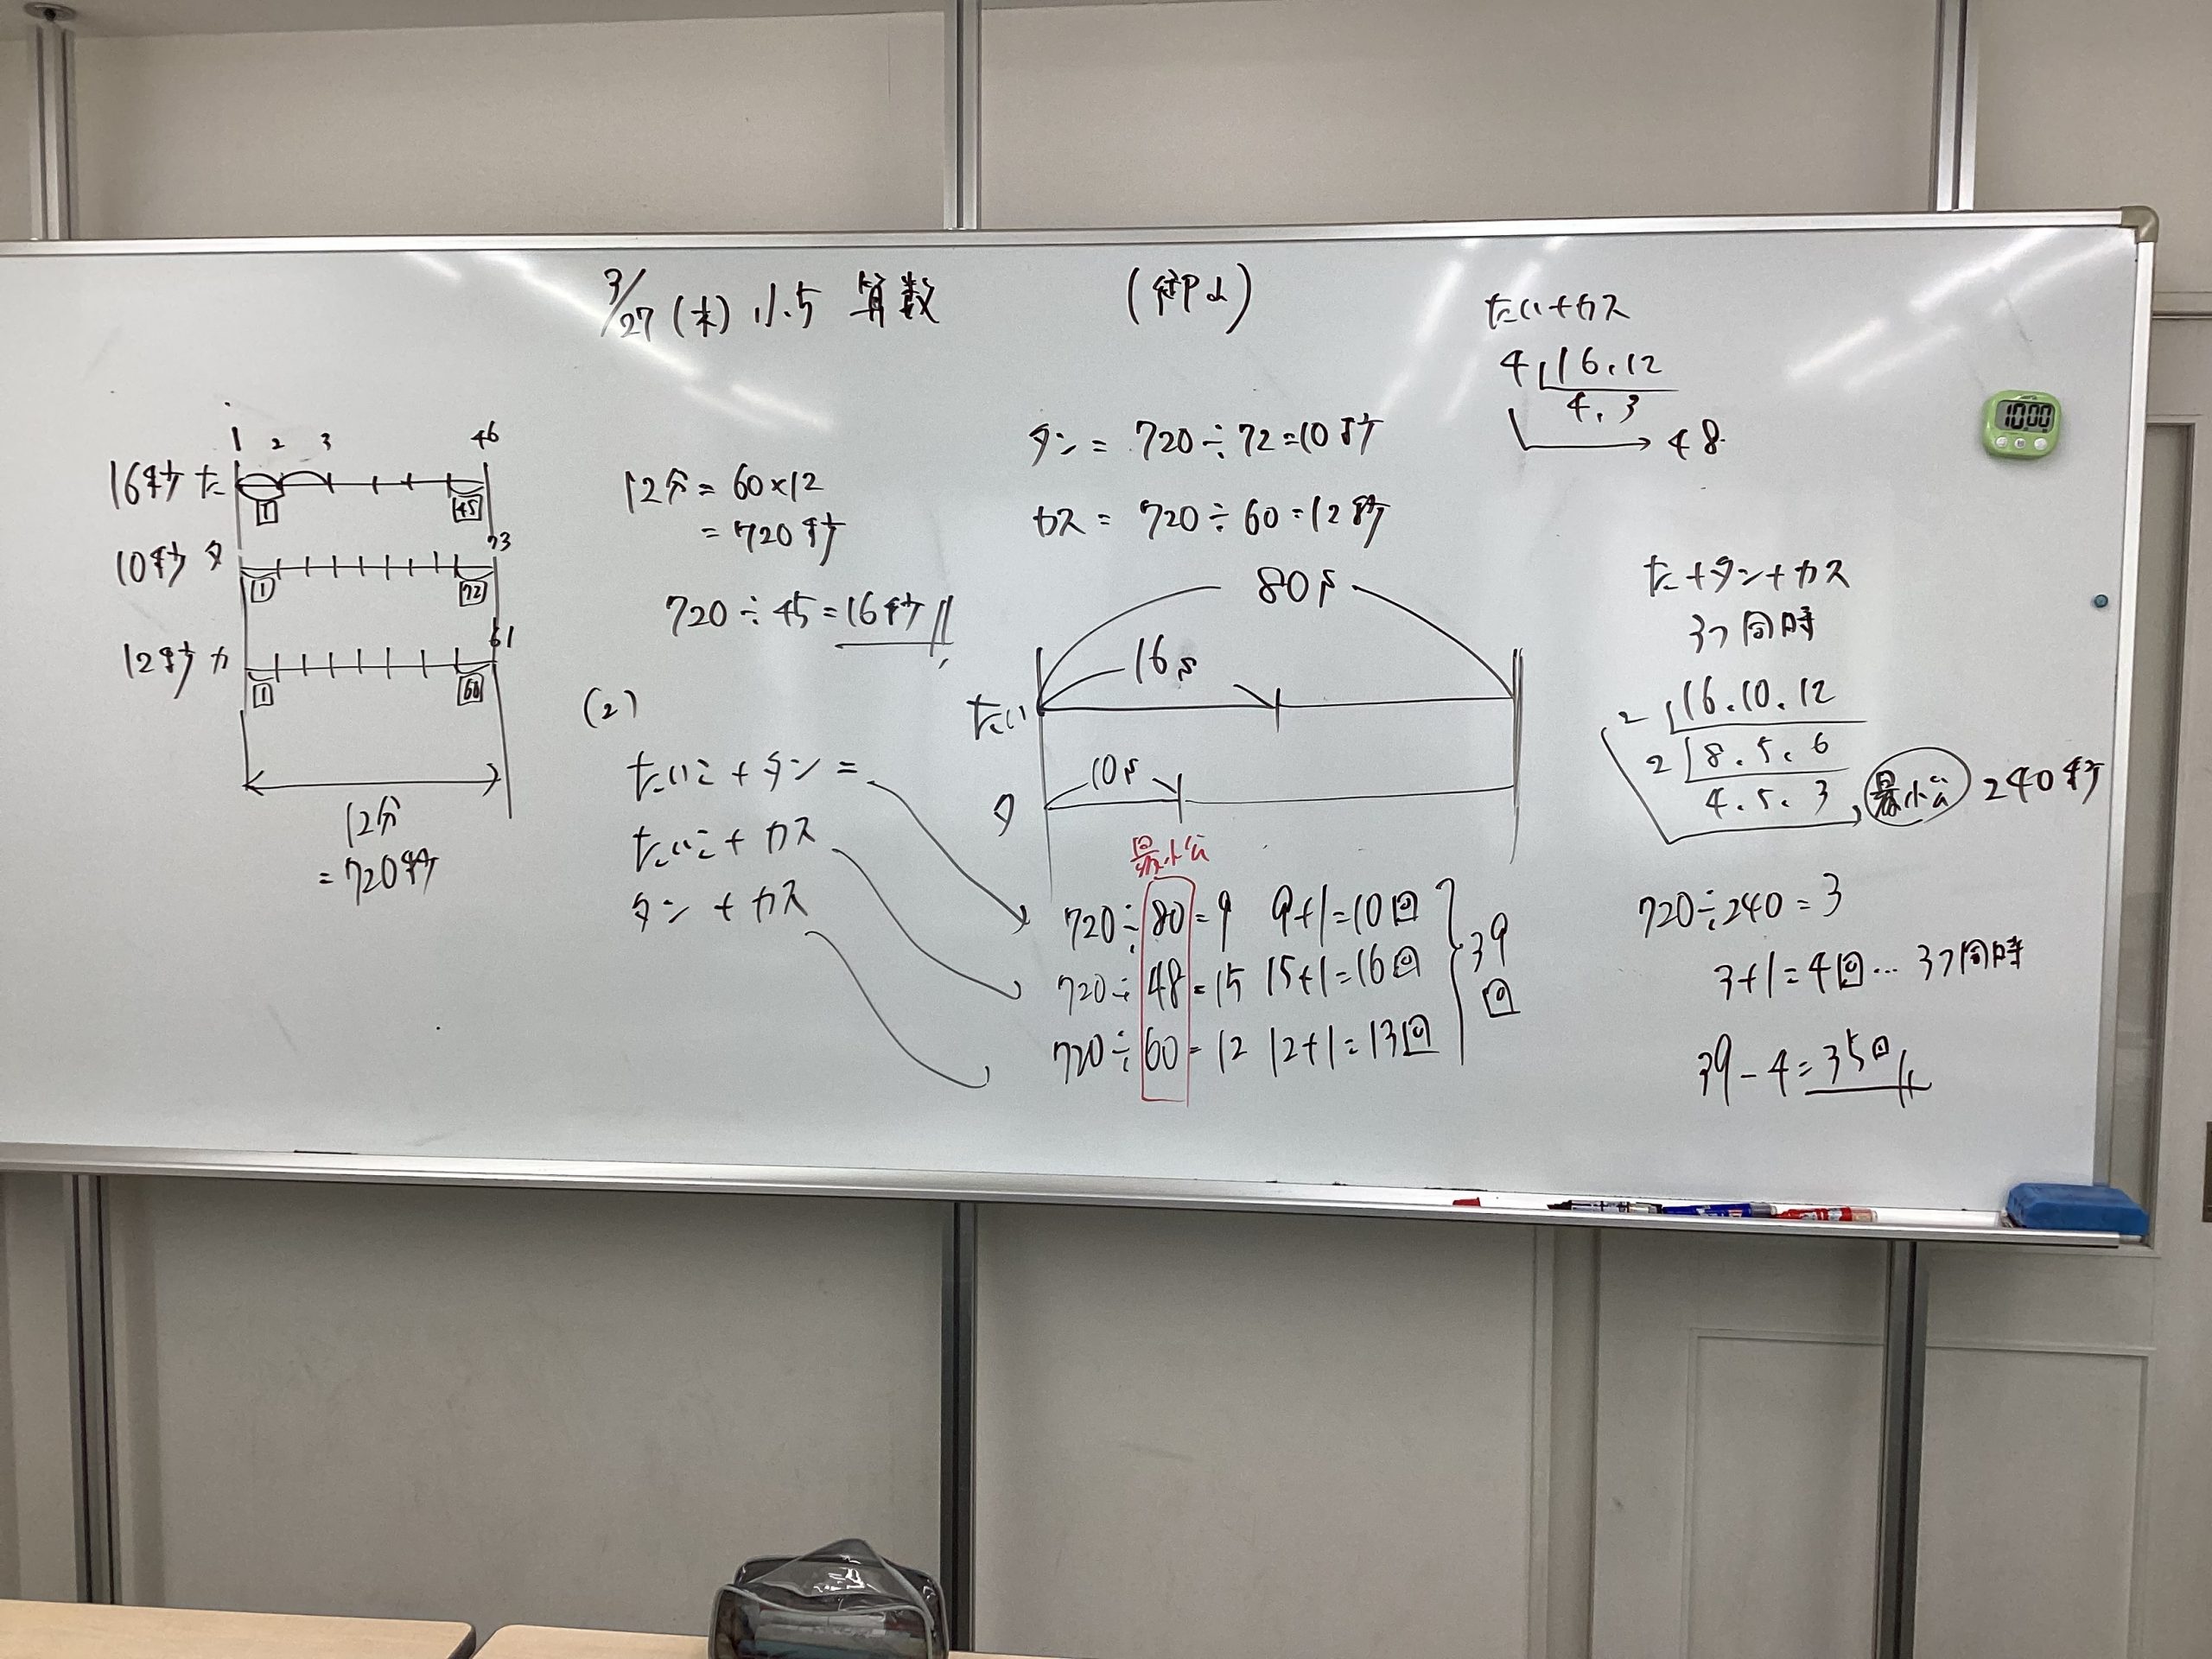 3/27 (木) 小5 算数
1 2 3 46
16秒 た
1 45
10秒 タ
73
1 72
12秒 カ
61
1 60
12分
= 720秒
12分 = 60×12
= 720秒
720÷45=16秒
(2)
たいこ + タン =
たいこ + カス
タン + カス
タン = 720÷72=10秒
カス = 720÷60=12秒
80s
16s
たい
10s
タ
最小公
720÷80=9 9+1=10回
720÷48=15 15+1=16回
720÷60=12 12+1=13回
39
回
たい+カス
4 16.12
4.3
48
た+タン+カス
3つ同時
2 16.10.12
2 8.5.6
4.5.3
最小公 240秒
720÷240=3
3+1=4回…3つ同時
39-4=35回
10:00